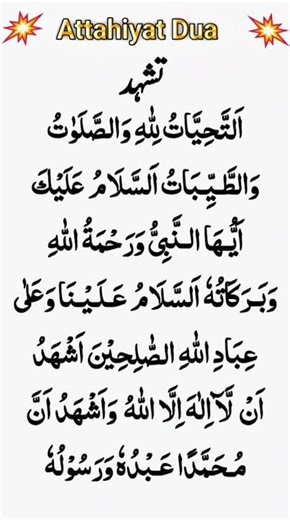 Attahiyat Dua
تشہد
اَلتَّحِيَّاتُ لِلّٰهِ وَالصَّلَوٰتُ
وَالطَّيِّبَاتُ اَلسَّلَامُ عَلَيْكَ
اَيُّهَا النَّبِيُّ وَرَحْمَةُ اللّٰهِ
وَبَرَكَاتُهٗ اَلسَّلَامُ عَلَيْنَا وَعَلٰى
عِبَادِ اللّٰهِ الصّٰلِحِيْنَ اَشْهَدُ
اَنْ لَّآ اِلٰهَ اِلَّا اللّٰهُ وَاَشْهَدُ اَنَّ
مُحَمَّدًا عَبْدُهٗ وَرَسُوْلُهٗ